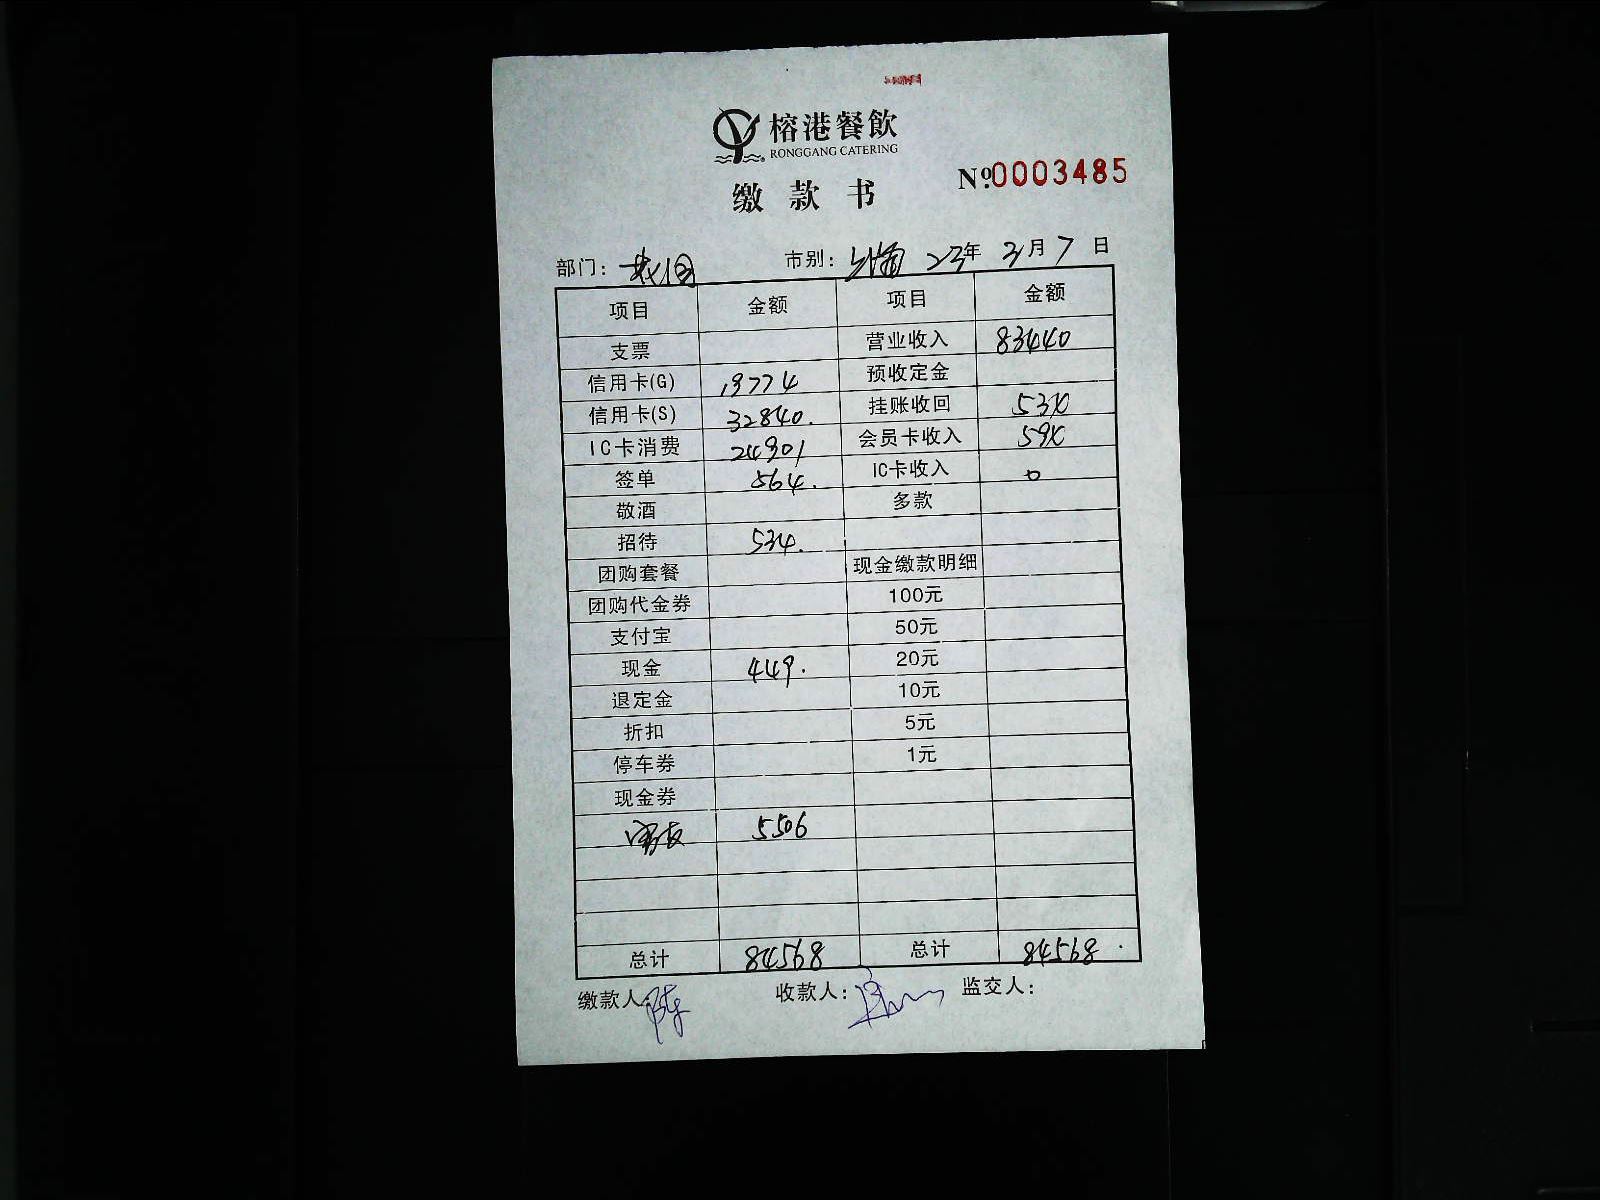 榕港餐飲
RONGGANG CATERING
缴款书
№0003485
部门: 市别: 23年3月7日
项目 金额 项目 金额
支票 营业收入 83440
信用卡(G) 19774 预收定金
信用卡(S) 32840. 挂账收回 534
IC卡消费 24901 会员卡收入 594
签单 564. IC卡收入 0
敬酒 多款
招待 534.
团购套餐 现金缴款明细
团购代金券 100元
支付宝 50元
现金 449. 20元
退定金 10元
折扣 5元
停车券 1元
现金券
5506
总计 84568 总计 84568.
缴款人:陈 收款人: 监交人: